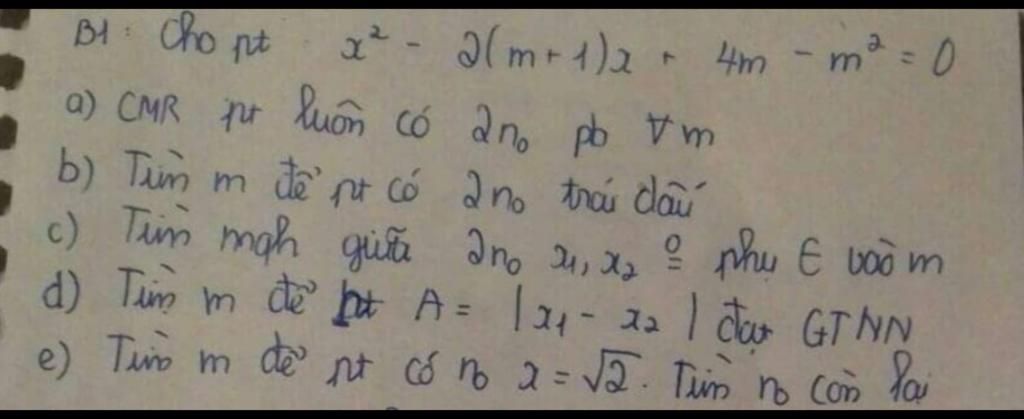 B1: Cho pt x² - 2(m+1)x + 4m - m² = 0
a) CMR pt luôn có 2no pb ∀m
b) Tìm m để pt có 2no trái dấu
c) Tìm mqh giữa 2no x₁, x₂ o̲ phụ ∈ vào m
d) Tìm m để A = |x₁ - x₂| đạt GTNN
e) Tìm m để pt có no x = √2. Tìm no còn lại